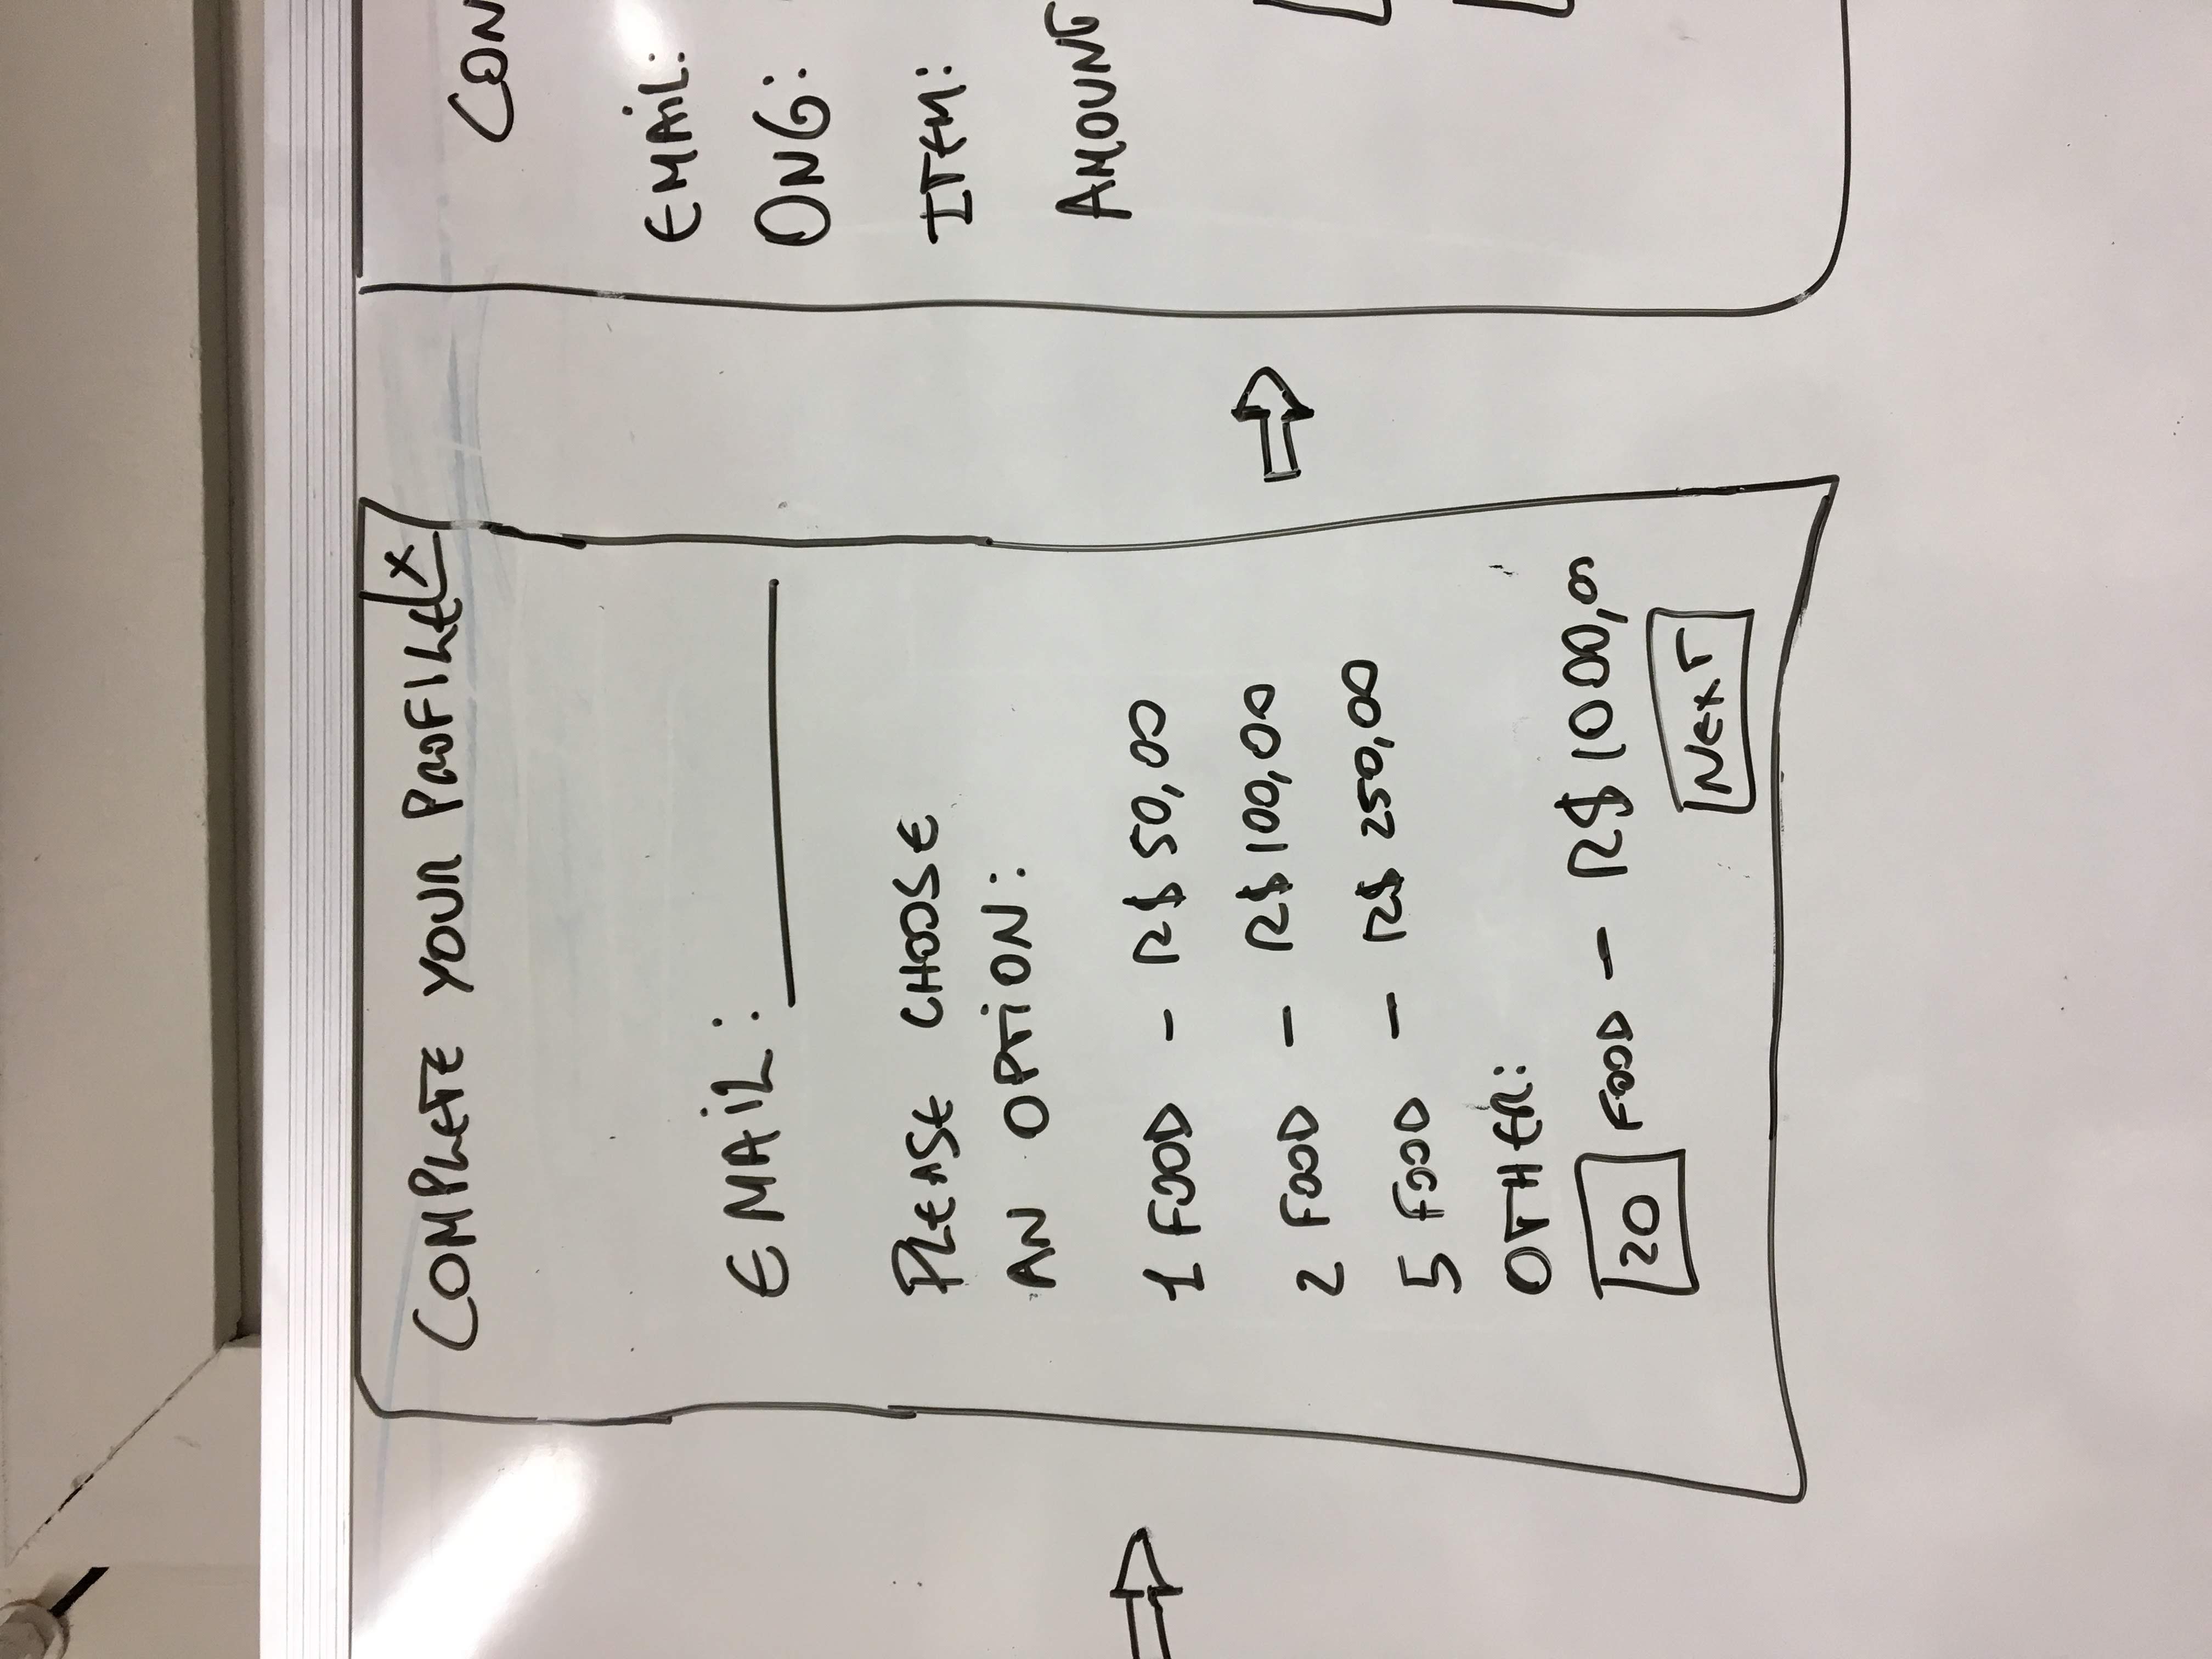 COMPLETE YOUR PROFILE X
EMAIL:
PLEASE CHOOSE
AN OPTION:
1 FOOD - R$ 50,00
2 FOOD - R$ 100,00
5 FOOD - R$ 250,00
OTHER:
20 FOOD - R$ 1000,00
NEXT
CON
EMAIL:
ONG:
ITEM:
AMOUNT